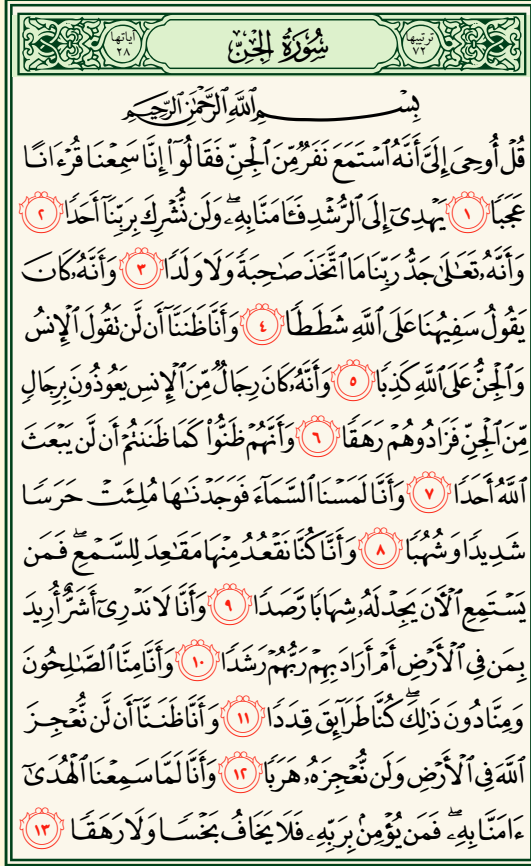 ترتيبها ٧٢ سُورَةُ الجِنِّ آياتها ٢٨
بِسْمِ ٱللَّهِ ٱلرَّحْمَٰنِ ٱلرَّحِيمِ
قُلْ أُوحِىَ إِلَىَّ أَنَّهُ ٱسْتَمَعَ نَفَرٌ مِّنَ ٱلْجِنِّ فَقَالُوٓا۟ إِنَّا سَمِعْنَا قُرْءَانًا
عَجَبًا ١ يَهْدِىٓ إِلَى ٱلرُّشْدِ فَـَٔامَنَّا بِهِۦ ۖ وَلَن نُّشْرِكَ بِرَبِّنَآ أَحَدًا ٢
وَأَنَّهُۥ تَعَٰلَىٰ جَدُّ رَبِّنَا مَا ٱتَّخَذَ صَٰحِبَةً وَلَا وَلَدًا ٣ وَأَنَّهُۥ كَانَ
يَقُولُ سَفِيهُنَا عَلَى ٱللَّهِ شَطَطًا ٤ وَأَنَّا ظَنَنَّآ أَن لَّن تَقُولَ ٱلْإِنسُ
وَٱلْجِنُّ عَلَى ٱللَّهِ كَذِبًا ٥ وَأَنَّهُۥ كَانَ رِجَالٌ مِّنَ ٱلْإِنسِ يَعُوذُونَ بِرِجَالٍ
مِّنَ ٱلْجِنِّ فَزَادُوهُمْ رَهَقًا ٦ وَأَنَّهُمْ ظَنُّوا۟ كَمَا ظَنَنتُمْ أَن لَّن يَبْعَثَ
ٱللَّهُ أَحَدًا ٧ وَأَنَّا لَمَسْنَا ٱلسَّمَآءَ فَوَجَدْنَٰهَا مُلِئَتْ حَرَسًا
شَدِيدًا وَشُهُبًا ٨ وَأَنَّا كُنَّا نَقْعُدُ مِنْهَا مَقَٰعِدَ لِلسَّمْعِ ۖ فَمَن
يَسْتَمِعِ ٱلْـَٔانَ يَجِدْ لَهُۥ شِهَابًا رَّصَدًا ٩ وَأَنَّا لَا نَدْرِىٓ أَشَرٌّ أُرِيدَ
بِمَن فِى ٱلْأَرْضِ أَمْ أَرَادَ بِهِمْ رَبُّهُمْ رَشَدًا ١٠ وَأَنَّا مِنَّا ٱلصَّٰلِحُونَ
وَمِنَّا دُونَ ذَٰلِكَ ۖ كُنَّا طَرَآئِقَ قِدَدًا ١١ وَأَنَّا ظَنَنَّآ أَن لَّن نُّعْجِزَ
ٱللَّهَ فِى ٱلْأَرْضِ وَلَن نُّعْجِزَهُۥ هَرَبًا ١٢ وَأَنَّا لَمَّا سَمِعْنَا ٱلْهُدَىٰٓ
ءَامَنَّا بِهِۦ ۖ فَمَن يُؤْمِنۢ بِرَبِّهِۦ فَلَا يَخَافُ بَخْسًا وَلَا رَهَقًا ١٣